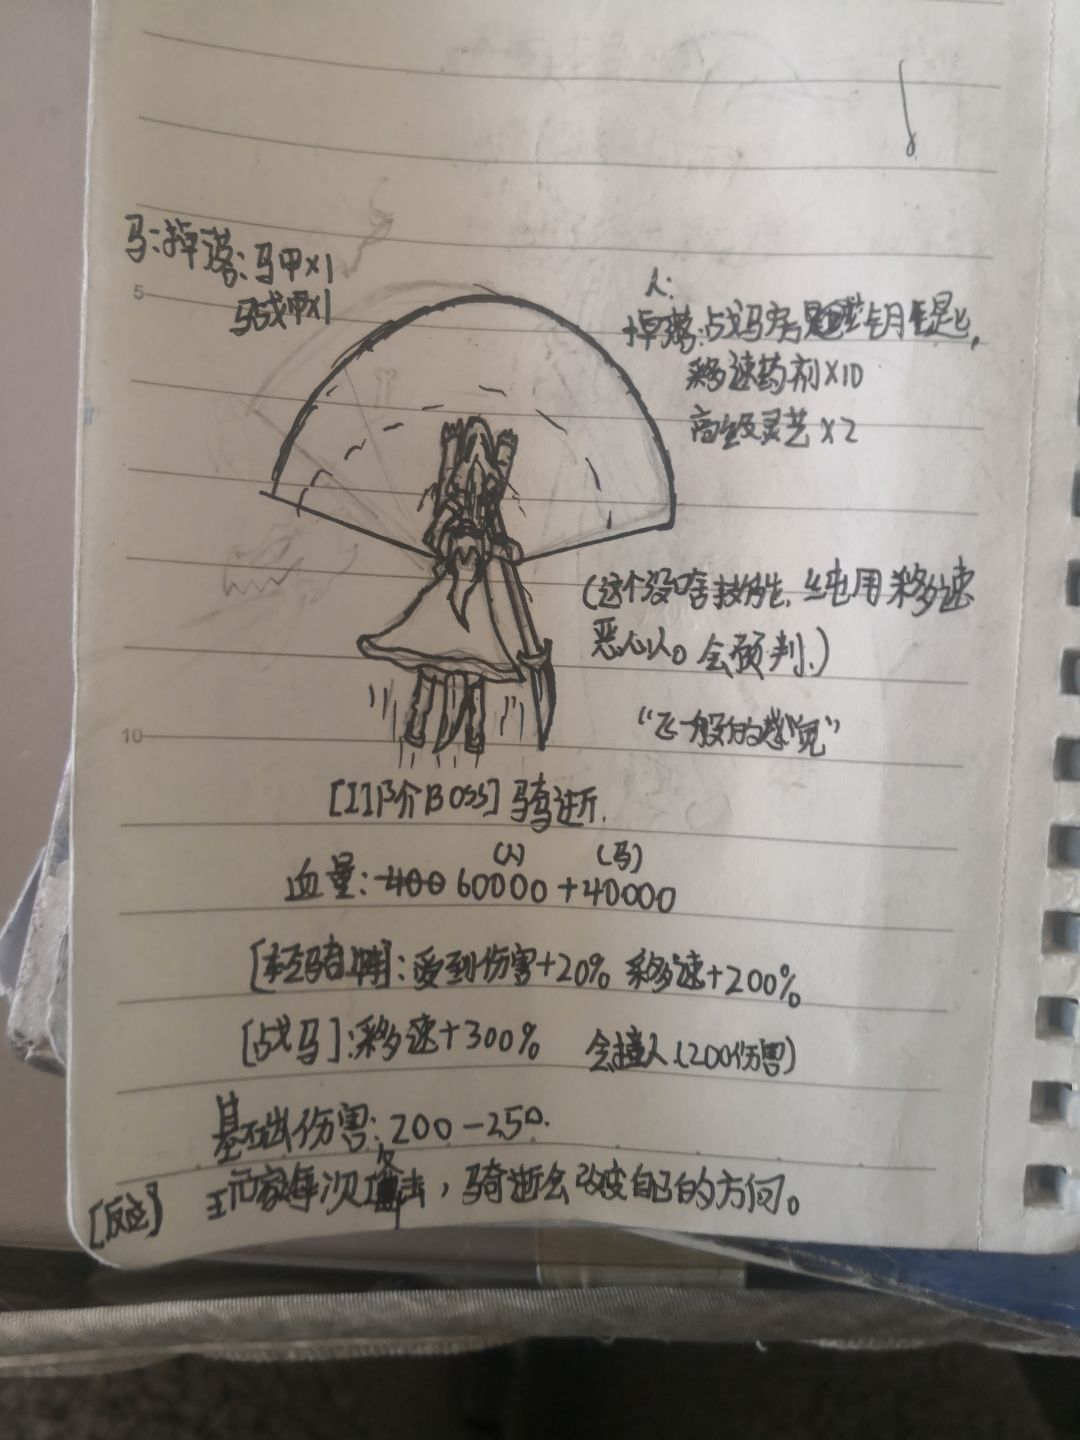 马:掉落:马甲×1
马战甲×1
人:
掉落:战马房 钥匙,
移速药剂×10
高级灵芝×2
(这个没啥技能,纯用移速
恶心人。会预判.)
“飞一般的感觉”
5
10
[II阶Boss]骑逝.
(人) (马)
血量:400 60000+40000
[轻骑]:受到伤害+20% 移速+200%
[战马]:移速+300% 会撞人(200伤害)
基础伤害:200-250.
玩家每次攻击,骑逝会改变自己的方向。
[反应]